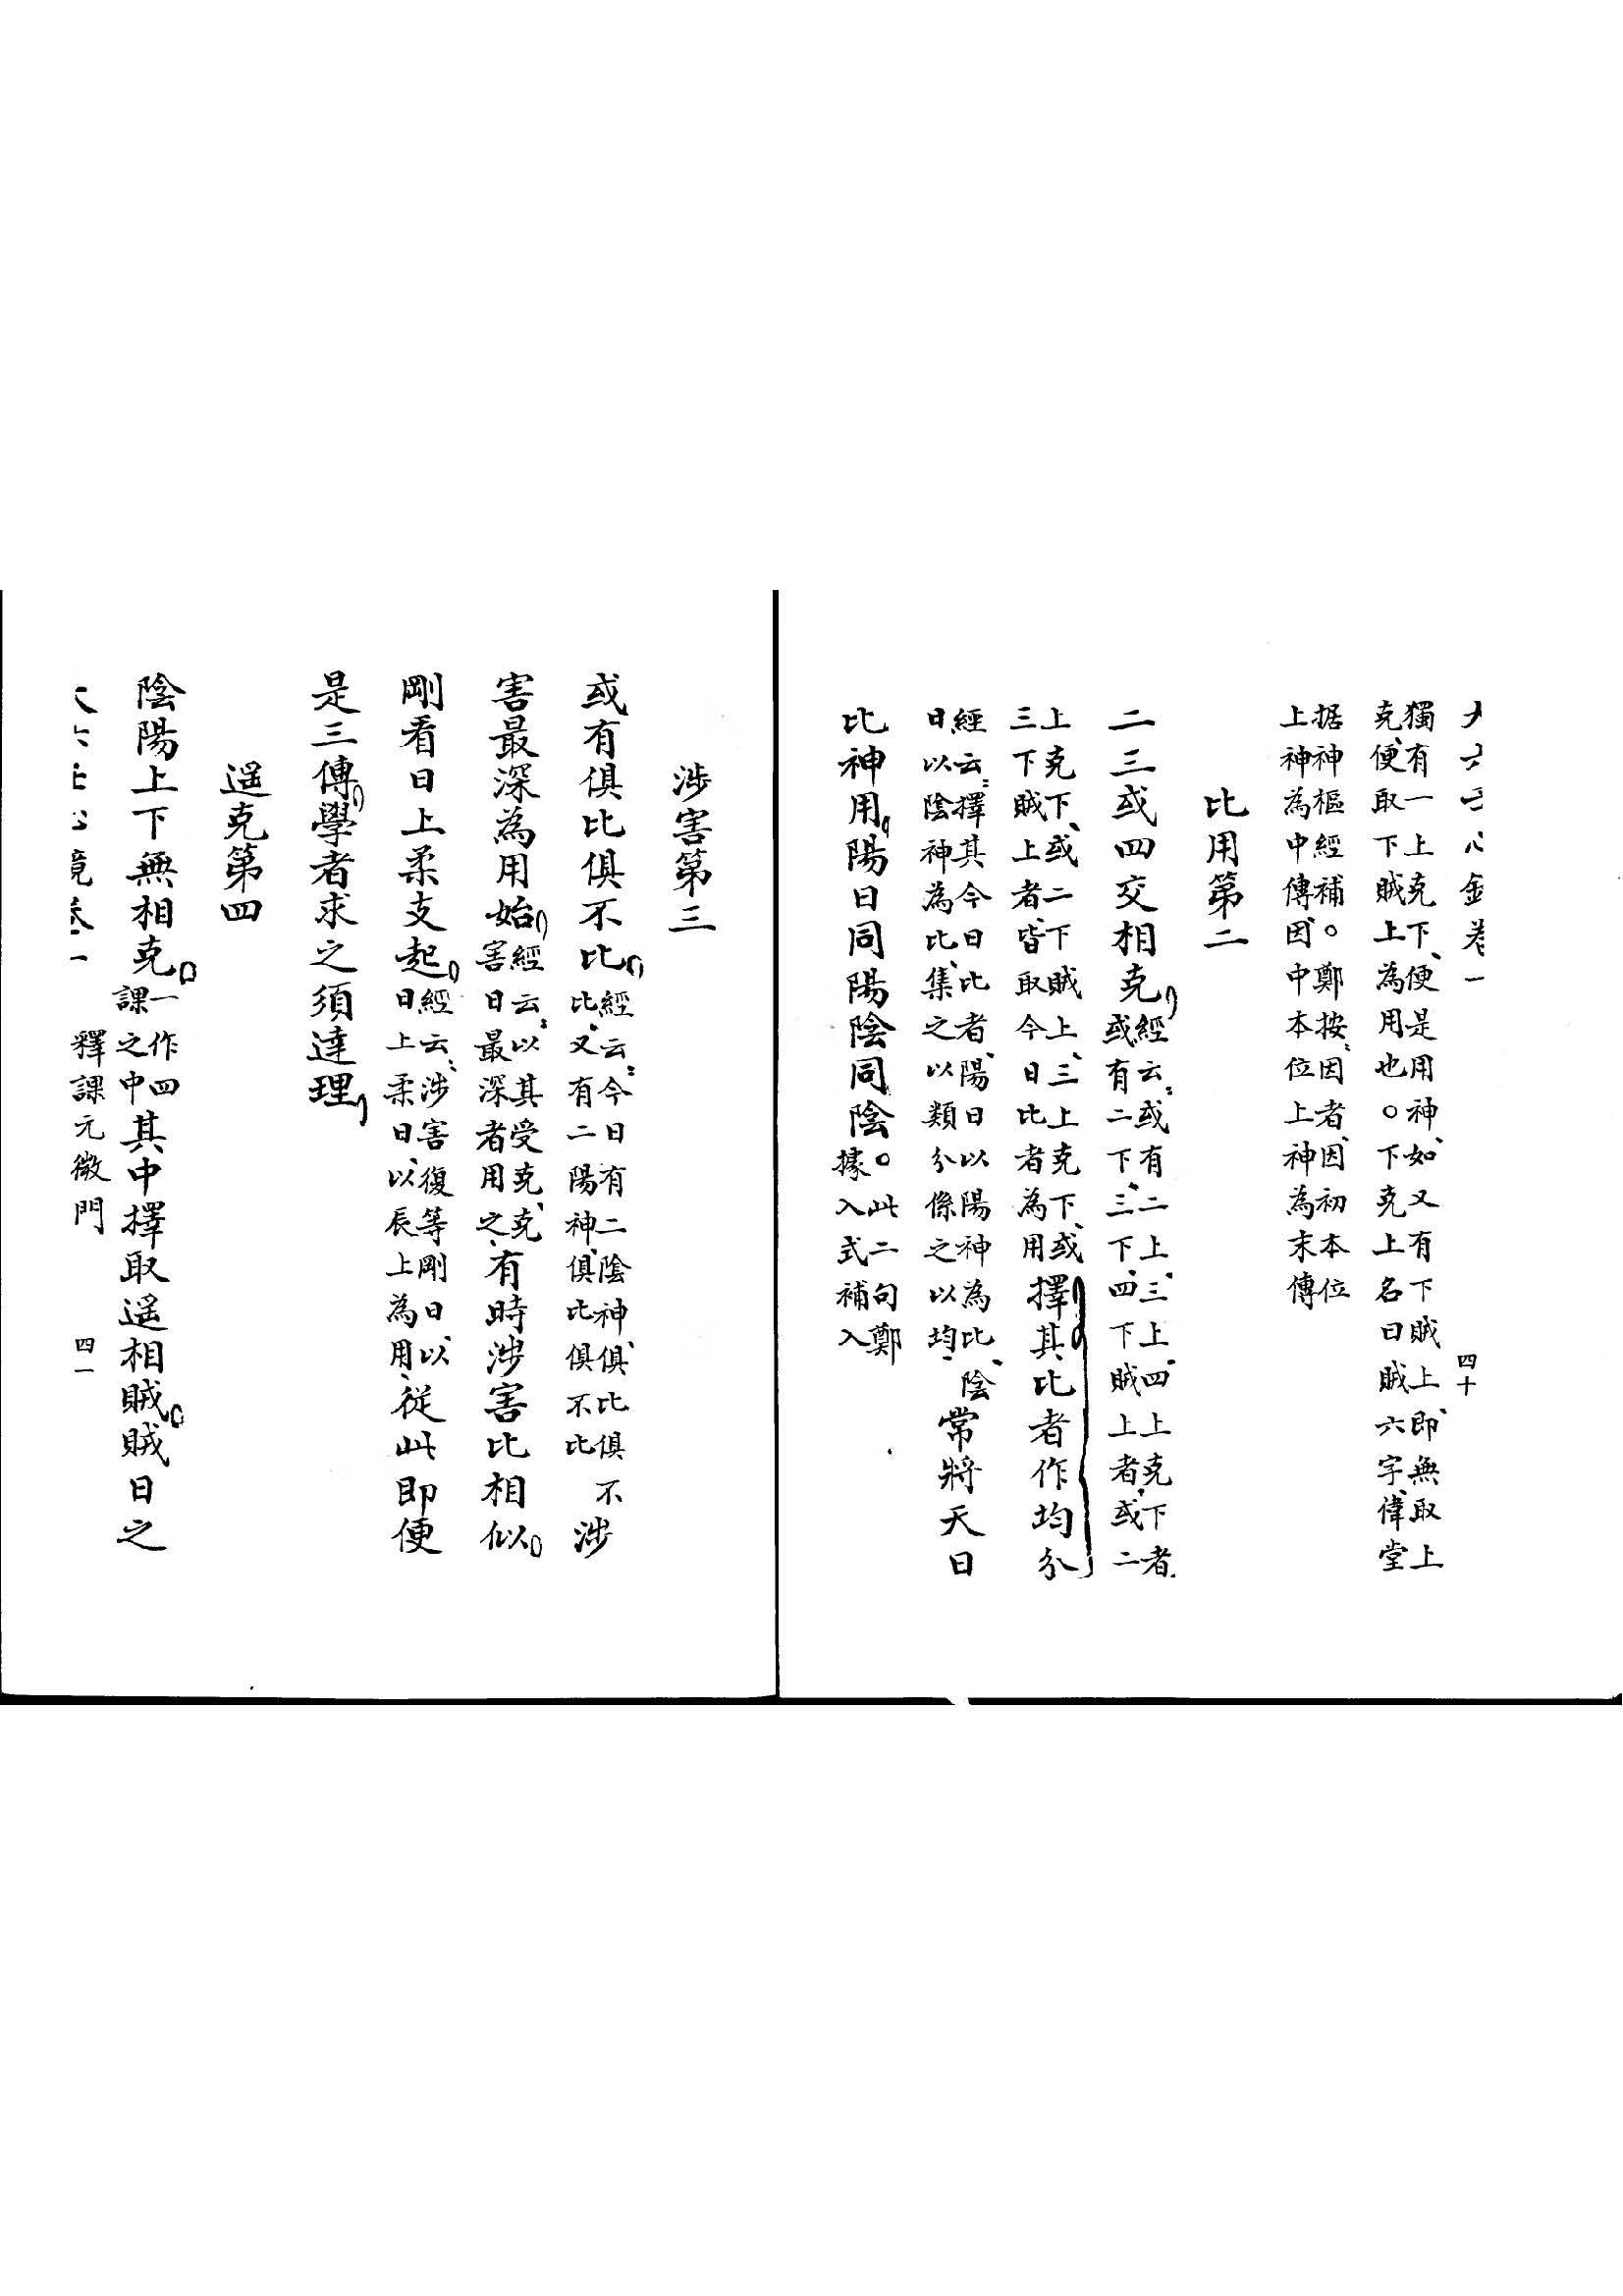 大六壬心鏡卷一 四十
獨有一上克下、便是用神、如又有下賊上、即無取上
克、便取下賊上為用也。下克上名曰賊六字、偉堂
据神樞經補。鄭按：因者、因初本位
上神為中傳、因中本位上神為末傳
比用第二
二三或四交相克，
經云：或有二上、三上、四上克下者、
或有二下、三下、四下賊上者、或二
上克下、或二下賊上、三上克下、或
三下賊上者、皆取今日比者為用
擇其比者作均分
經云：擇其今日比者、陽日以陽神為比、陰
日、以陰神為比、集之以類分條之以均、
常將天日
比神用，陽日同陽陰同陰
。此二句鄭
據入式補入
涉害第三
或有俱比俱不比，
經云：今日有二陰神、俱比俱不
比、又有二陽神、俱比俱不比
涉
害最深為用始，
經云：以其受克、克
害日最深者用之、
有時涉害比相似。
剛看日上柔支起，
經云：涉害復等剛日、以
日上柔日、以辰上為用、
從此即便
是三傳，學者求之須達理，
遥克第四
陰陽上下無相克。
一作四
課之中
其中擇取遥相賊。賊日之
大六壬心鏡卷一 釋課元微門 四一